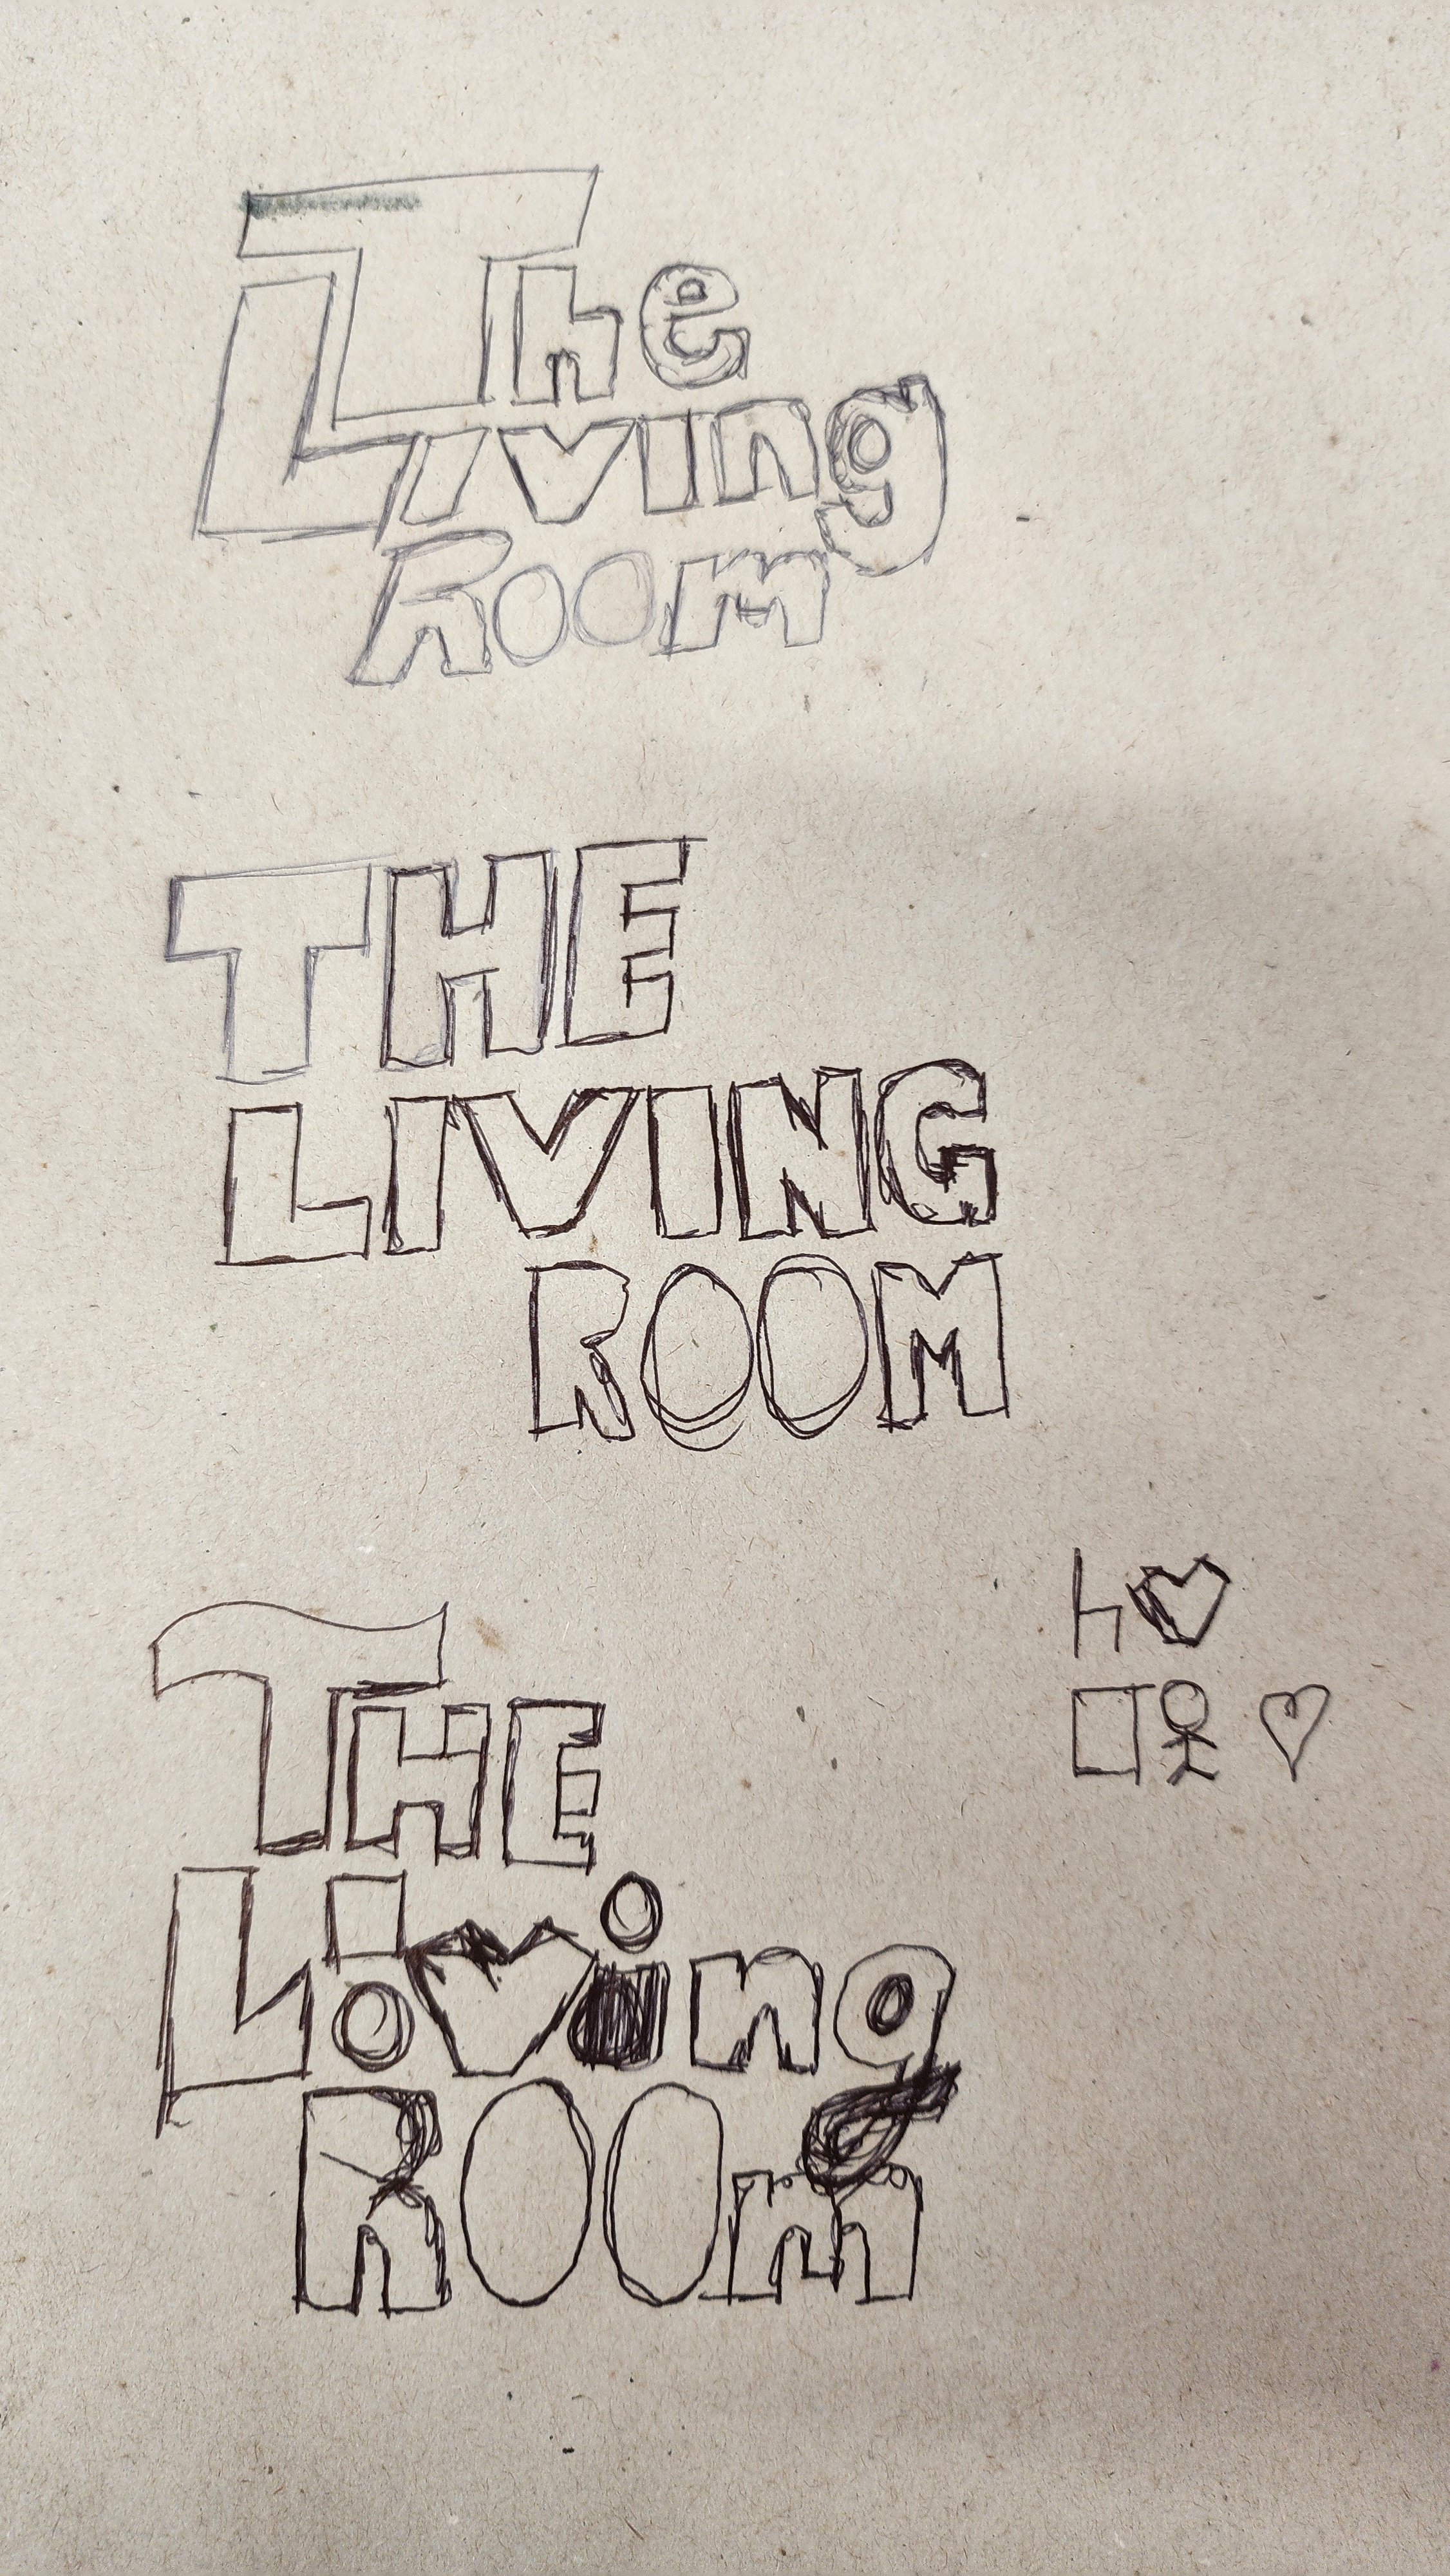 The
Living
Room
THE
LIVING
ROOM
THE
Living
ROOm